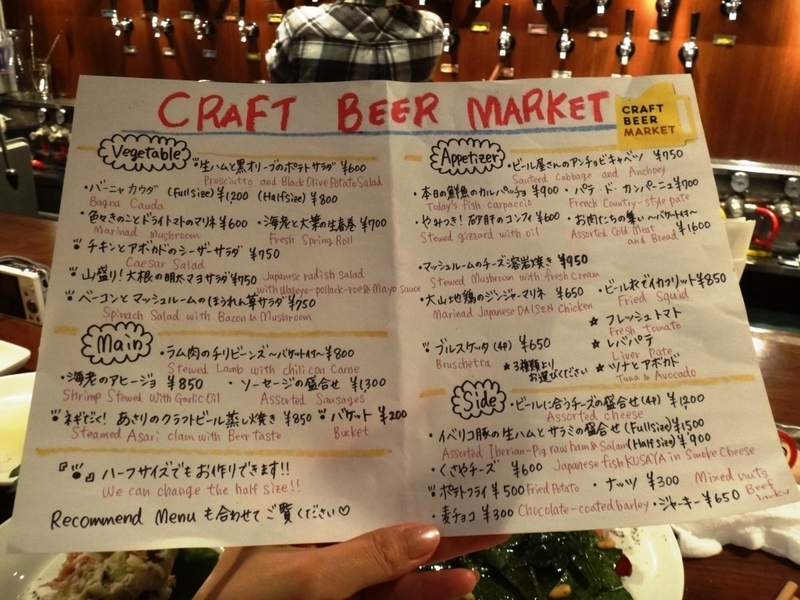 CRAFT BEER MARKET
CRAFT
BEER
MARKET
Vegetable
生ハムと黒オリーブのポテトサラダ ¥600
Prosciutto and Black Olive Potato Salad
・バーニャカウダ (Fullsize) ¥1200 (Halfsize) ¥800
Bagna Cauda
・色々きのことドライトマトのマリネ ¥600
Marinad Mushroom
・海老と大葉の生春巻 ¥700
Fresh Spring Roll
チキンとアボカドのシーザーサラダ ¥750
Caesar Salad
山盛り!大根の明太マヨサラダ ¥750
Japanese radish salad
with Walleye-pollack-roe & Mayo sauce
ベーコンとマッシュルームのほうれん草サラダ ¥750
Spinach Salad with Bacon & Mushroom
Main
・ラム肉のチリビーンズ 〜バゲット付〜 ¥800
Stewed Lamb with chili con Carne
・海老のアヒージョ ¥850
Shrimp Stewed with Garlic Oil
・ソーセージの盛合せ ¥1300
Assorted Sausages
ネギだく! あさりのクラフトビール蒸し焼き ¥850
Steamed Asari clam with Beer Taste
バゲット ¥200
Bucket
『 』ハーフサイズでもお作りできます!!
We can change the half size!!
Recommend Menu も合わせてご覧ください♡
Appetizer
・ビール屋さんのアンチョビキャベツ ¥750
Sauteed Cabbage and Anchovy
・本日の鮮魚のカルパッチョ ¥900
Today's fish carpaccio
・パテ・ド・カンパーニュ ¥700
French Country-style pate
・やみつき! 砂肝のコンフィ ¥600
Stewed gizzard with oil
・お肉たちの集い 〜バゲット付〜 ¥1600
Assorted Cold Meat
and Bread
・マッシュルームのチーズ溶岩焼き ¥950
Stewed Mushroom with fresh Cream
・大山地鶏のジンジャーマリネ ¥650
Marinad Japanese DAISEN Chicken
・ビール衣でイカフリット ¥850
Fried Squid
・ブルスケッタ (4P) ¥650
Bruschetta
★3種類より
お選びください
☆ フレッシュトマト
Fresh tomato
☆ レバパテ
Liver Pate
☆ ツナとアボカド
Tuna & Avocado
Side
・ビールに合うチーズの盛合せ(4P) ¥1200
Assorted cheese
・イベリコ豚の生ハムとサラミの盛合せ (Fullsize) ¥1500
Assorted Iberian-Pig raw ham & Salami (Half size) ¥900
・くさやチーズ ¥600 Japanese fish KUSAYA in Smoke Cheese
ポテトフライ ¥500 Fried Potato
・ナッツ ¥300 Mixed nuts
・麦チョコ ¥300 Chocolate-coated barley
・ジャーキー ¥650 Beef Jerky